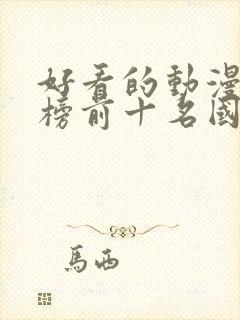 好看的動漫
榜前十名國
馬西